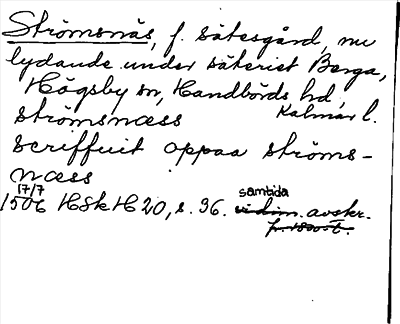 Strömsnäs, f. sätesgård, nu
lydande under säteriet Berga,
Högsby sn, Handbörds hd,
Kalmar l.
strömsnæss
scriffuit oppaa ströms-
næss
17/7
1506 HSk H 20, s. 96. samtida
vidim. avskr.
fr. 1500-t.